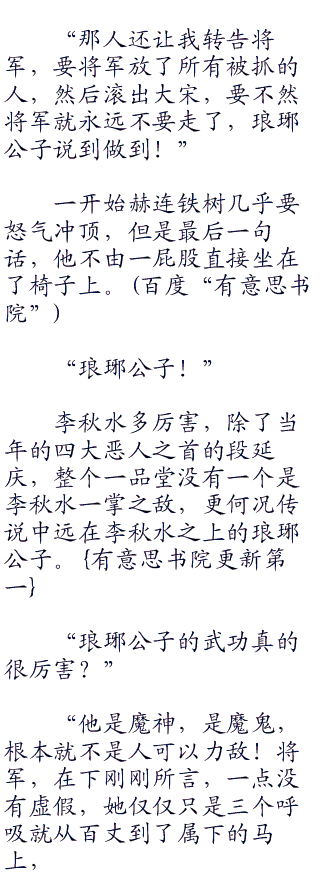 “那人还让我转告将
军，要将军放了所有被抓的
人，然后滚出大宋，要不然
将军就永远不要走了，琅琊
公子说到做到！”
一开始赫连铁树几乎要
怒气冲顶，但是最后一句
话，他不由一屁股直接坐在
了椅子上。(百度“有意思书
院”)
“琅琊公子！”
李秋水多厉害，除了当
年的四大恶人之首的段延
庆，整个一品堂没有一个是
李秋水一掌之敌，更何况传
说中远在李秋水之上的琅琊
公子。{有意思书院更新第
一}
“琅琊公子的武功真的
很厉害？”
“他是魔神，是魔鬼，
根本就不是人可以力敌！将
军，在下刚刚所言，一点没
有虚假，她仅仅只是三个呼
吸就从百丈到了属下的马
上，